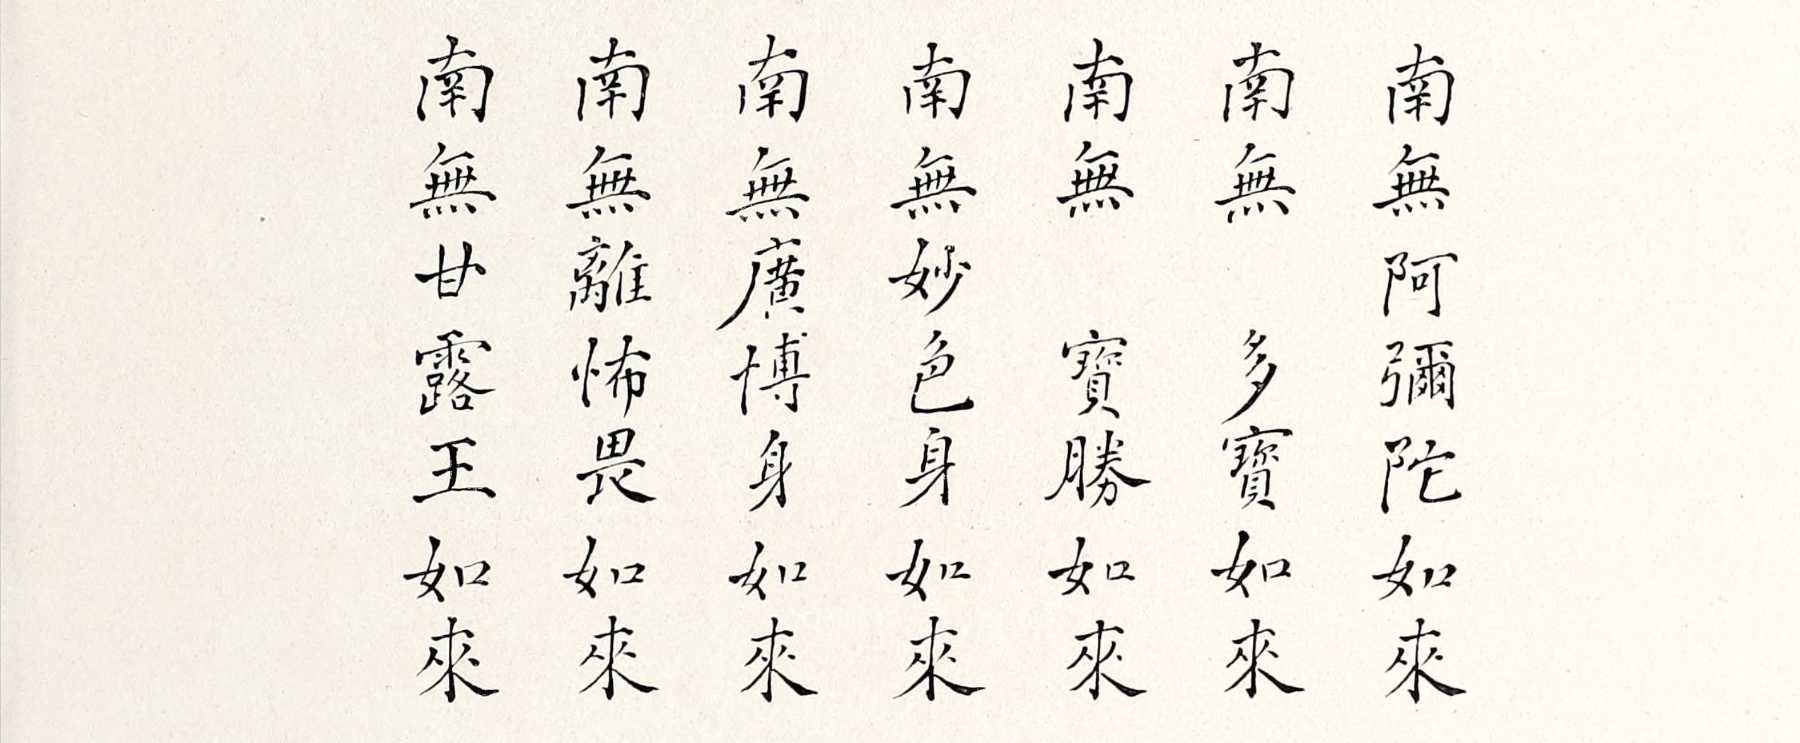 南無阿彌陀如來
南無多寶如來
南無寶勝如來
南無妙色身如來
南無廣博身如來
南無離怖畏如來
南無甘露王如來